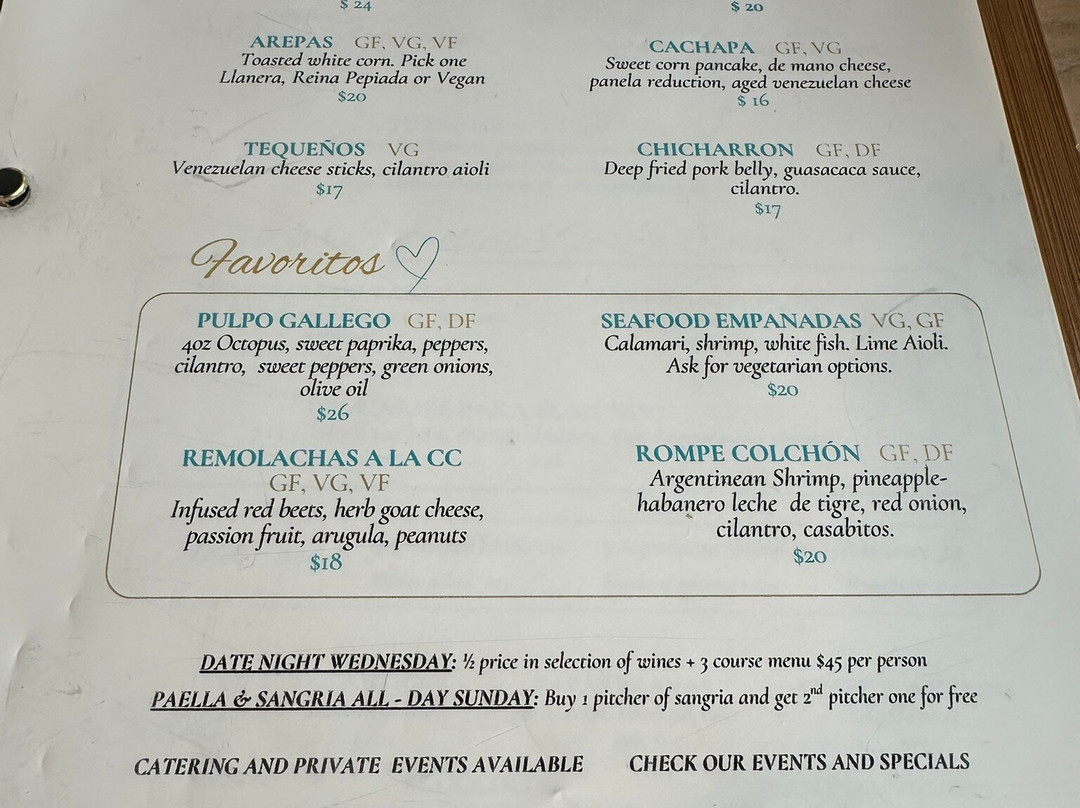 $ 24
$ 20
AREPAS GF, VG, VF
Toasted white corn. Pick one
Llanera, Reina Pepiada or Vegan
$20
CACHAPA GF, VG
Sweet corn pancake, de mano cheese,
panela reduction, aged venezuelan cheese
$ 16
TEQUEÑOS VG
Venezuelan cheese sticks, cilantro aioli
$17
CHICHARRON GF, DF
Deep fried pork belly, guasacaca sauce,
cilantro.
$17
Favoritos
PULPO GALLEGO GF, DF
4oz Octopus, sweet paprika, peppers,
cilantro, sweet peppers, green onions,
olive oil
$26
SEAFOOD EMPANADAS VG, GF
Calamari, shrimp, white fish. Lime Aioli.
Ask for vegetarian options.
$20
REMOLACHAS A LA CC
GF, VG, VF
Infused red beets, herb goat cheese,
passion fruit, arugula, peanuts
$18
ROMPE COLCHÓN GF, DF
Argentinean Shrimp, pineapple-
habanero leche de tigre, red onion,
cilantro, casabitos.
$20
DATE NIGHT WEDNESDAY: ½ price in selection of wines + 3 course menu $45 per person
PAELLA & SANGRIA ALL - DAY SUNDAY: Buy 1 pitcher of sangria and get 2nd pitcher one for free
CATERING AND PRIVATE EVENTS AVAILABLE CHECK OUR EVENTS AND SPECIALS